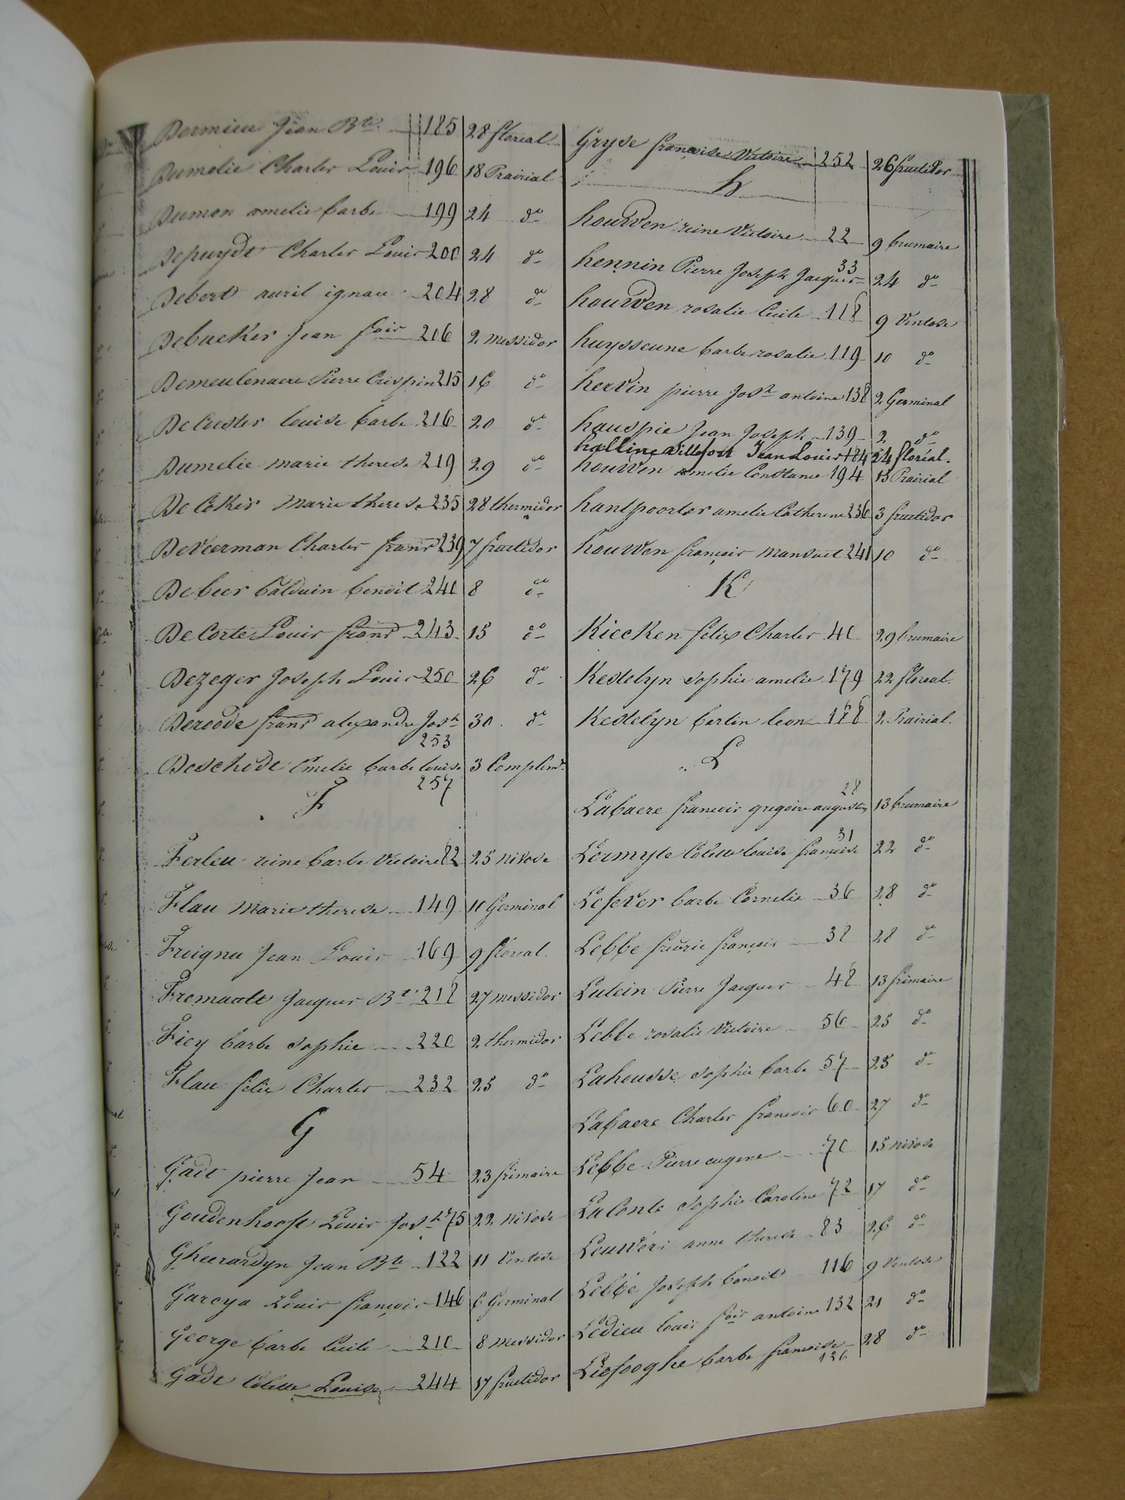 Dermieu Jean Bte 185 28 floreal
Dumelie Charles Louis 196 18 Prairial
Dumon amelie barbe 199 24 do
Depuydt Charles Louis 200 24 do
Debert avril ignace 204 28 do
Debacker Jean fois 206 2 messidor
Demeulenaere Pierre Crispin 215 16 do
DeCuester louise barbe 216 20 do
Dumelie marie therese 219 29 do
DeCoker marie therese 235 28 thermidor
DeVeerman Charles franç 239 7 fructidor
De beer balduin benoit 240 8 do
DeCorte Louis franç 243 15 do
Dezeger Joseph Louis 250 26 do
Derodde franç alexandre Josh 30 do
253
Deschidt Emelie barbe louise 3 Complemt
257
F
Ferleu reine barbe victoire 82 25 nivose
Flau marie therese 149 11 Germinal
Freigne Jean Louis 169 9 floreal
Fremault Jacques Bte 218 27 messidor
Ficy barbe sophie 220 2 thermidor
Flau félix Charles 232 25 do
G
Gadt pierre Jean 54 23 frimaire
Goudenhooft Louis Josh 75 22 nivose
Gheerardyn Jean Bte 122 11 Ventose
Gareya Louis françois 146 6 Germinal
George barbe Cécile 210 8 messidor
Gadt Colette Louise 244 17 fructidor
Gryse françoise Victoire 252 26 fructidor
h
houvven reine Victoire 22 9 brumaire
hennin Pierre Joseph Jacques 33 24 do
houvven rosalie Cecile 118 9 Ventose
huysseune barbe rosalie 119 10 do
hervin pierre Josh antoine 138 2 Germinal
hauspie Jean Joseph 139 2 do
halline Jean Louis 184 24 floréal
houvven amelie Constance 194 15 Prairial
hantpoorter amelie Catherine 236 3 fructidor
houvven françois mansuet 241 10 do
K
Kiecken félix Charles 40 29 brumaire
Kestelyn sophie amelie 179 22 floreal
Kestelyn bertin leon 188 2 Prairial
L
28
Labaere francois gregoire augustin 13 brumaire
31
Lermyte Colette louise françoise 22 do
Lefever barbe Cornelie 36 28 do
Lebbe françois 38 28 do
Lutein Pierre Jacques 48 13 frimaire
Lebbe rosalie victoire 56 25 do
Laheusse sophie barbe 57 25 do
Labaere Charles francois 60 27 do
Lebbe Pierre eugene 70 15 nivose
LaConte sophie Caroline 72 17 do
Leuwers anne therese 83 26 do
Lebbe Joseph benoit 116 9 Ventose
Ledieu louis fois antoine 132 21 do
Liefooghe barbe francoise 28 do
136